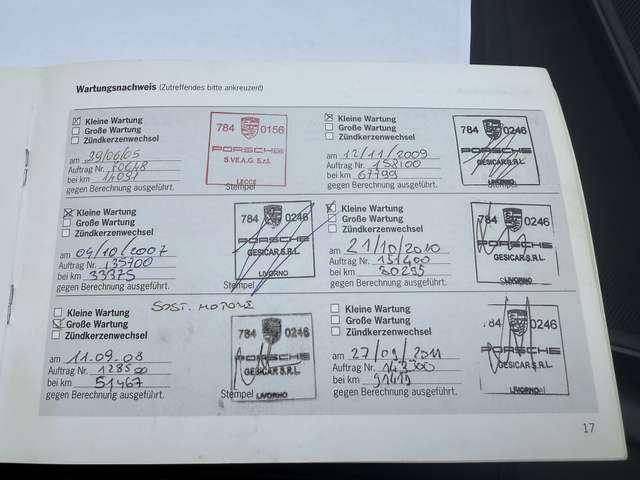 Wartungsnachweis (Zutreffendes bitte ankreuzen!)
Kleine Wartung
Große Wartung
Zündkerzenwechsel
am 29/06/05
Auftrag Nr. 70648
bei km 14091
gegen Berechnung ausgeführt.
Stempel
784 0156
PORSCHE
S.VE.A.G. S.r.l.
LECCE
Kleine Wartung
Große Wartung
Zündkerzenwechsel
am 12/11/2009
Auftrag Nr. 158100
bei km 67799
gegen Berechnung ausgeführt.
784 0246
PORSCHE
GESICAR S.R.L.
LIVORNO
Kleine Wartung
Große Wartung
Zündkerzenwechsel
am 04/10/2007
Auftrag Nr. 135700
bei km 33375
gegen Berechnung ausgeführt.
Stempel
784 0246
PORSCHE
GESICAR S.R.L.
LIVORNO
Kleine Wartung
Große Wartung
Zündkerzenwechsel
am 21/10/2010
Auftrag Nr. 151400
bei km 80295
gegen Berechnung ausgeführt.
784 0246
PORSCHE
GESICAR S.R.L.
LIVORNO
SOST. MOTORE
Kleine Wartung
Große Wartung
Zündkerzenwechsel
am 11.09.08
Auftrag Nr. 128500
bei km 51467
gegen Berechnung ausgeführt.
Stempel
784 0246
PORSCHE
GESICAR S.R.L.
LIVORNO
Kleine Wartung
Große Wartung
Zündkerzenwechsel
am 27/09/2011
Auftrag Nr. 143300
bei km 91419
gegen Berechnung ausgeführt.
784 0246
PORSCHE
GESICAR S.R.L.
17